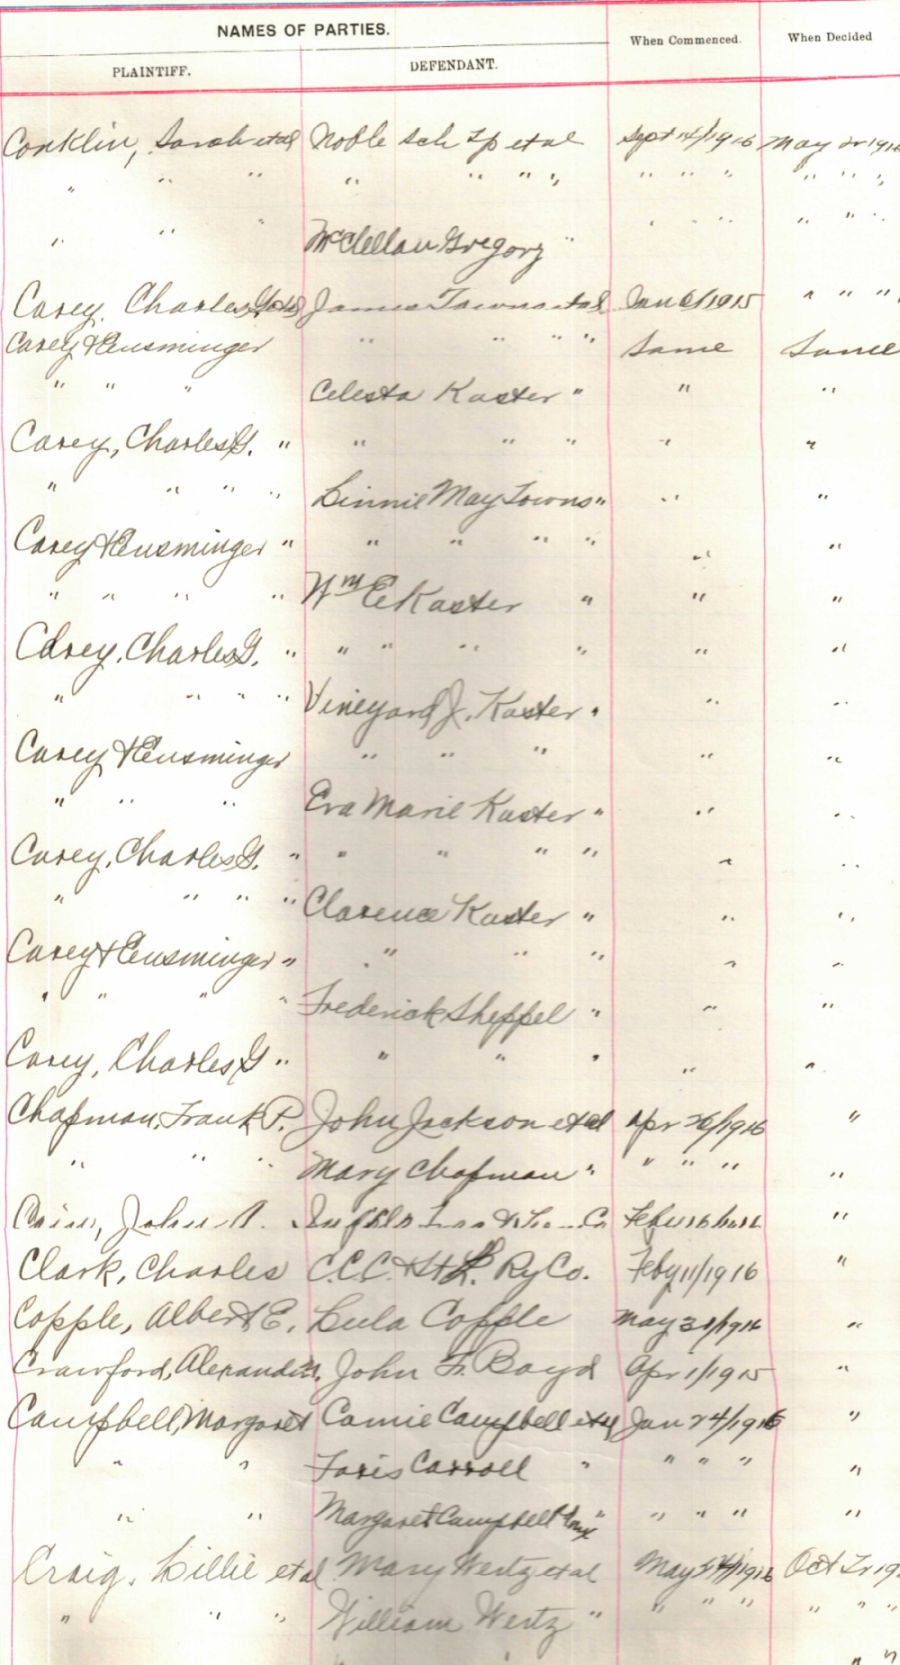 NAMES OF PARTIES.
When Commenced. When Decided
PLAINTIFF. DEFENDANT.
Conklin, Sarah etal Noble Sch Tp etal Sept 14/1916 May Tr 1916
" " " " " " " " " " " " "
" " " McClellan Gregory " " " " " " "
Casey, Charles G. etal James Towns etal Jan 6/1915 " " "
Casey & Ensminger " " " " Same Same
" " " Celesta Kaster " " "
Casey, Charles G. " " " " " "
" " " " Binnie May Towns " " "
Casey & Ensminger " " " " " " "
" " " " Wm E Kaster " " "
Casey, Charles G. " " " " " " "
" " " " Vineyard J. Kaster " " "
Casey & Ensminger " " " " "
" " " Eva Marie Kaster " " "
Casey, Charles G. " " " " " " "
" " " " Clarence Kaster " " "
Casey & Ensminger " " " " " "
" " " " Frederick Sheppel " " "
Casey, Charles G " " " " " "
Chapman, Frank P. John Jackson etal Apr 26/1916 "
" " " Mary Chapman " " " " "
John Co. "
Clark, Charles C.C.C. & St L. Ry Co. Feby 11/1916 "
Copple, Albert E. Lula Copple May 31/1916 "
Crawford, John F. Boyd Apr 1/1915 "
Campbell, Margaret Camie Campbell etal Jan 24/1916 "
" " Faris Carroll " " " " "
" " Margaret Campbell " " " " "
Craig, Lillie etal Mary Wertz etal May 24/1916 Oct Tr 19
" " " William Wertz " " " " " " "
" "